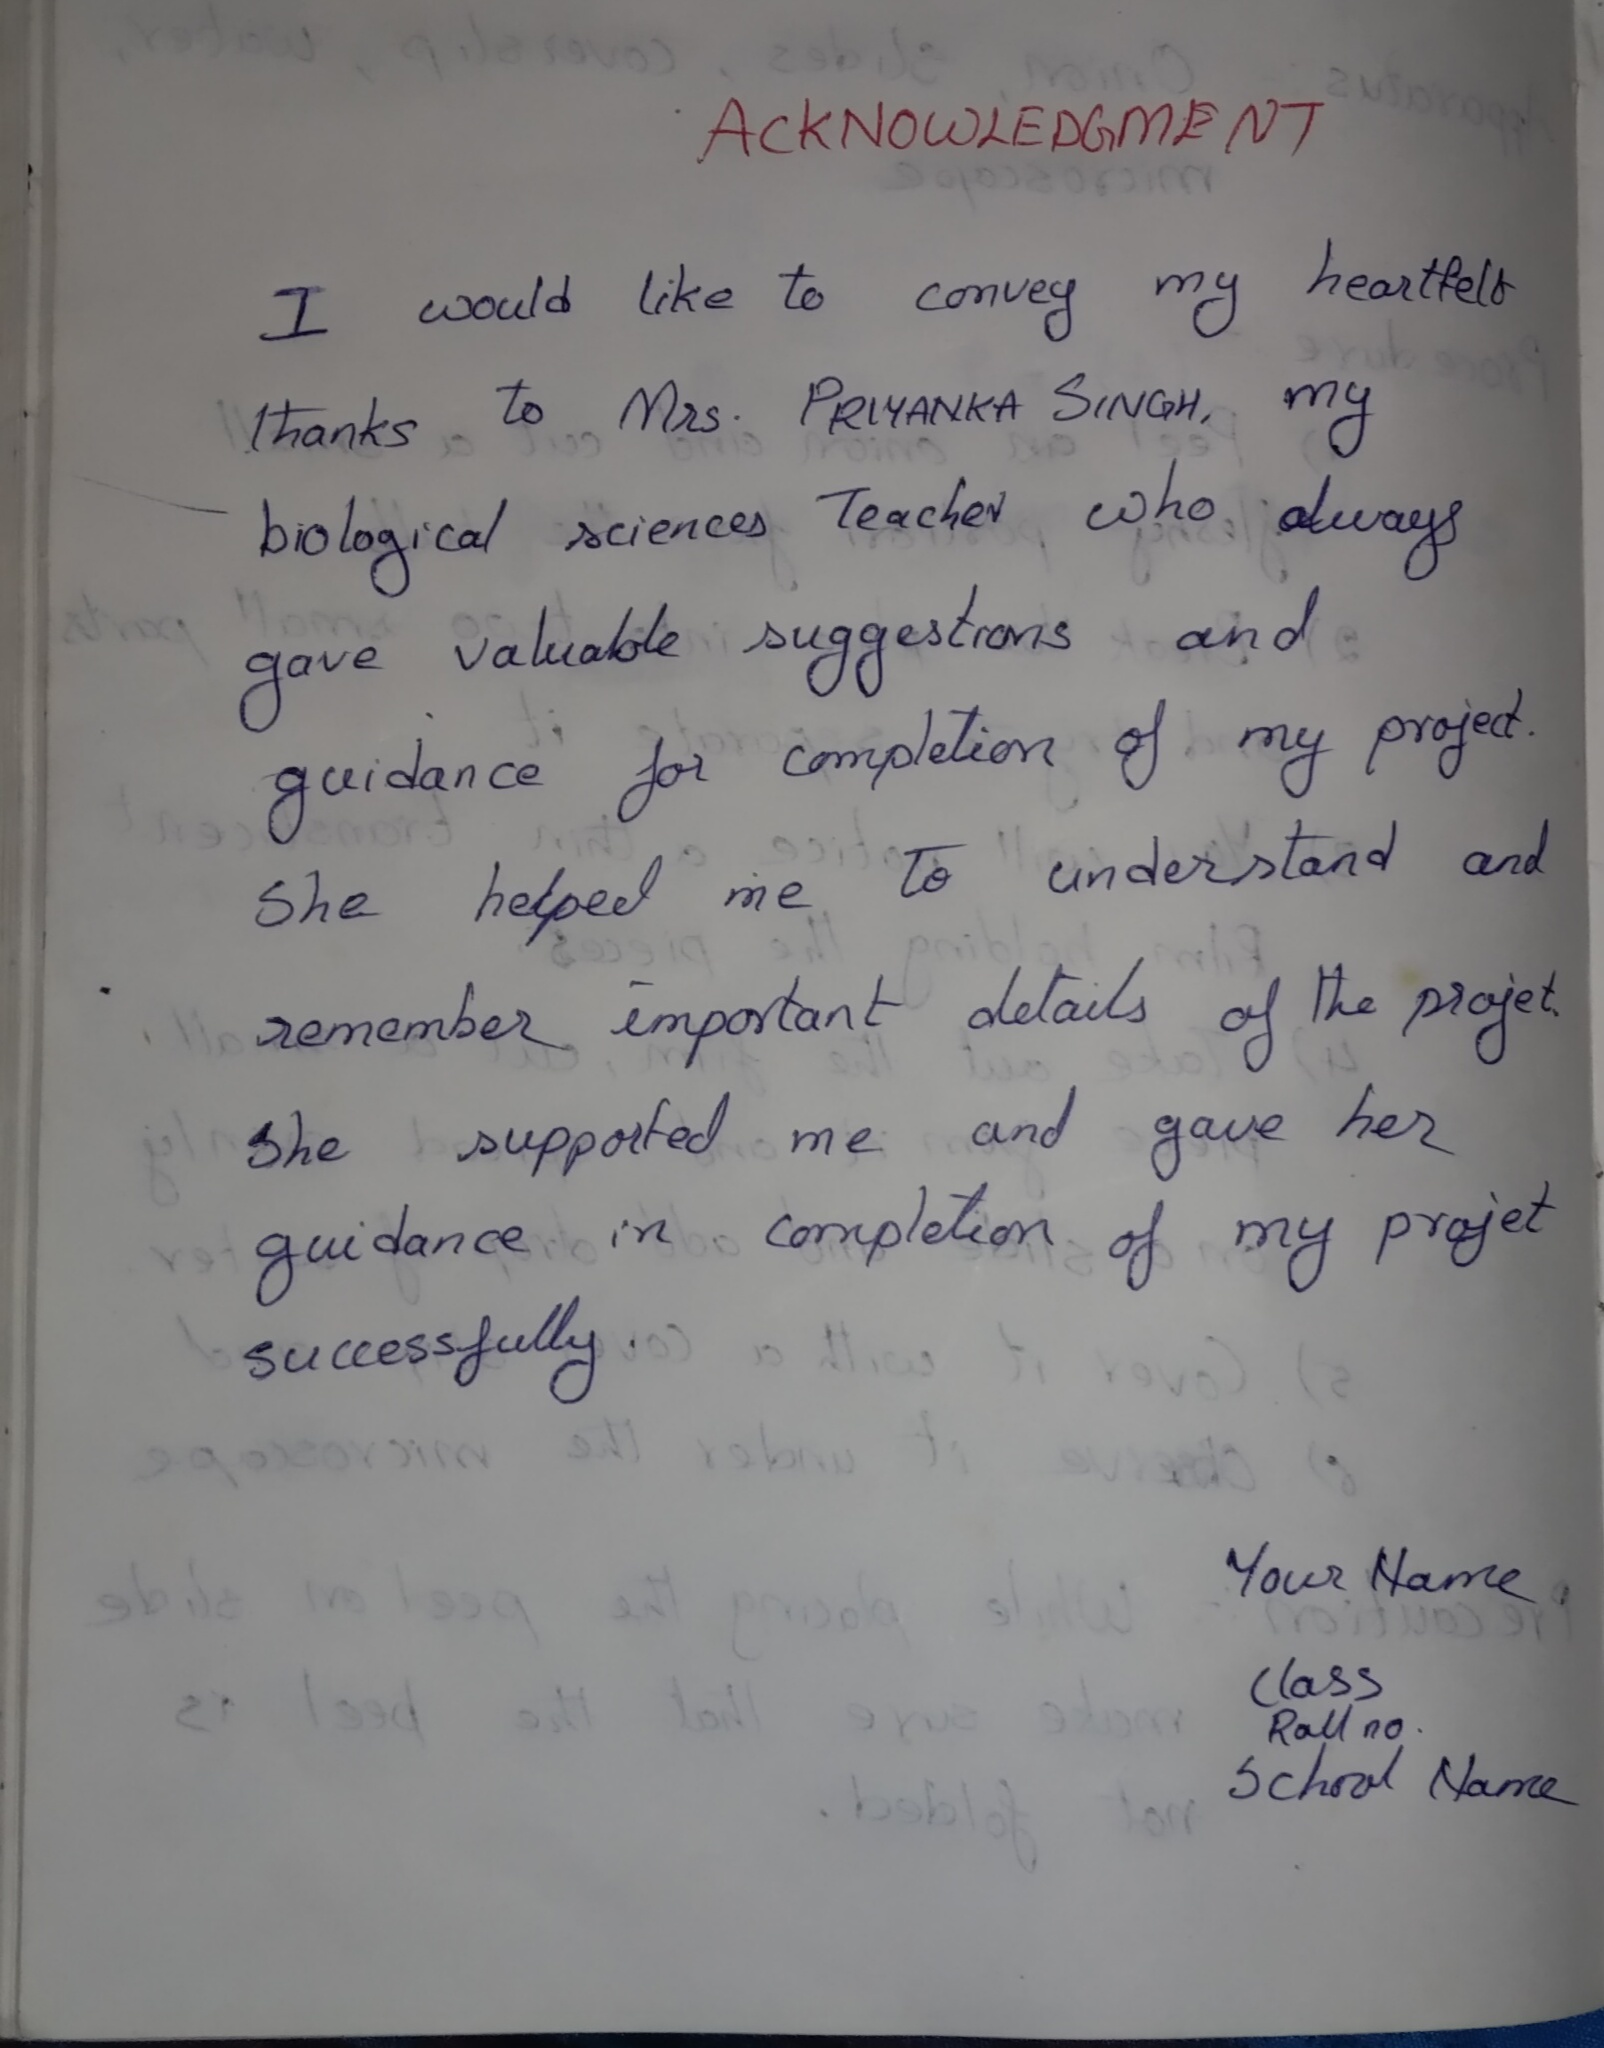 ACKNOWLEDGMENT
I would like to convey my heartfelt
thanks to Mrs. PRIYANKA SINGH, my
biological sciences Teacher who always
gave valuable suggestions and
guidance for completion of my project.
She helped me to understand and
remember important details of the projet.
She supported me and gave her
guidance in completion of my projet
successfully.
Your Name
Class
Roll no.
School Name